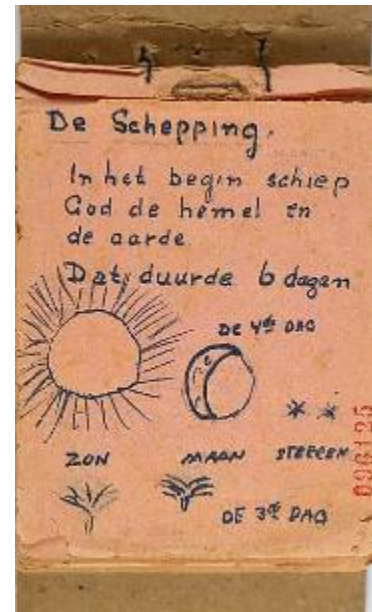 De Schepping.
In het begin schiep
God de hemel en
de aarde
Dat duurde 6 dagen
DE 4de DAG
ZON MAAN STERREN
DE 3de DAG
096125